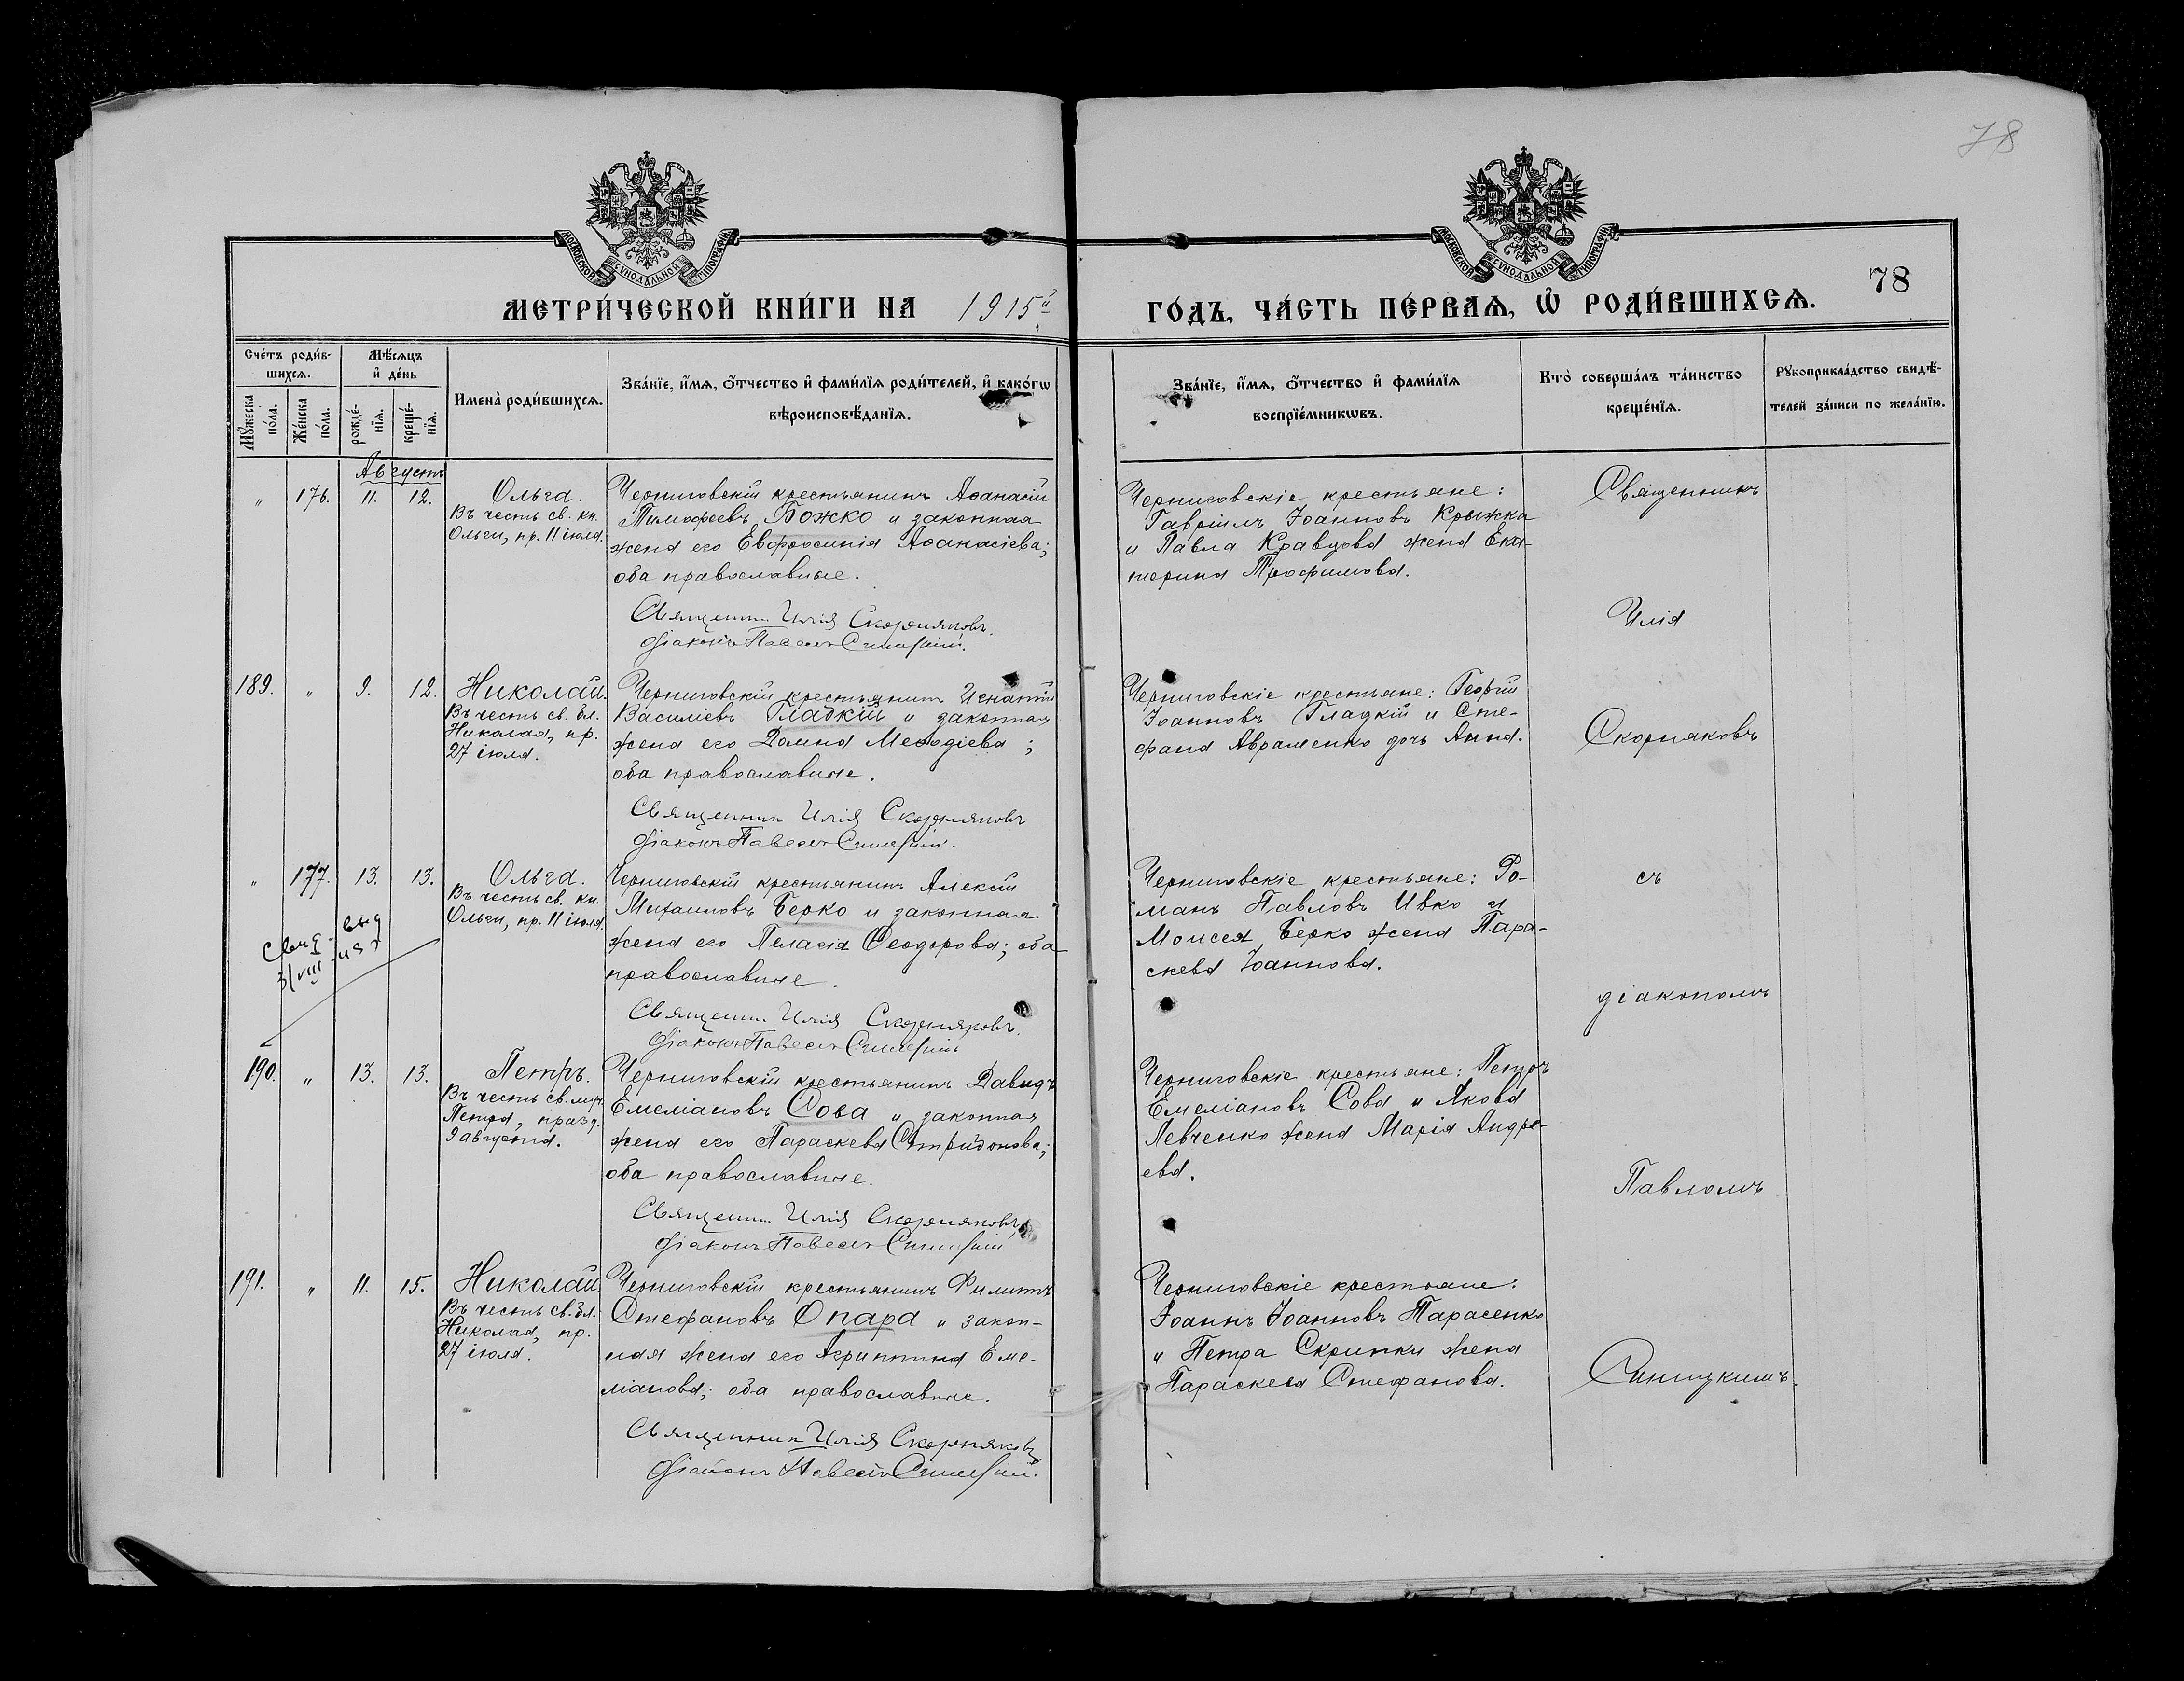 78
МОСКОВСКОЙ СѴНОДАЛЬНОЙ ТИПОГРАФІИ
МОСКОВСКОЙ СѴНОДАЛЬНОЙ ТИПОГРАФІИ
МЕТРИ́ЧЕСКОЙ КНИ́ГИ НА 1915й
ГО́ДЪ, ЧА́СТЬ ПЕ́РВАѦ, Ѡ҆ РОДИ́ВШИХСѦ.
78
Сче́тъ роди́в-
шихсѧ.
Мꙋ́жеска
по́ла.
Же́нска
по́ла.
Мѣ́сѧцъ
и҆ де́нь
рожде́-
нїѧ.
креще́-
нїѧ.
Имена̀ роди́вшихсѧ.
Зва́нїе, и҆́мѧ, ѻ҆́тчество и҆ фами́лїѧ роди́телей, и҆ како́гѡ
вѣроисповѣ́данїѧ.
Зва́нїе, и҆́мѧ, ѻ҆́тчество и҆ фами́лїѧ
воспрїе́мникѡвъ.
Кто̀ соверша́лъ та́инство
креще́нїѧ.
Рꙋкоприкла́дство свидѣ́-
телей за́писи по жела́нїю.
Августъ
" 176. 11. 12.
Ольга.
Въ честь св. кн.
Ольги, пр. 11 іюля.
Черниговскій крестьянинъ Аѳанасій
Тимофеевъ Божко и законная
жена его Евфросинія Аѳанасіева;
оба православные.
Священник Илія Скорняковъ.
Діаконъ Павелъ Синицкій.
Черниговскіе крестьяне:
Гавріилъ Іоанновъ Крыжка
и Павла Кравцова жена Ека-
терина Трофимова.
Священникъ
Илія
189. " 9. 12.
Николай.
Въ честь св. бл.
Николая, пр.
27 іюля.
Черниговскій крестьянинъ Игнатій
Василіевъ Гладкій и законная
жена его Домна Меѳодіева;
оба православные.
Священник Илія Скорняковъ
Діаконъ Павелъ Синицкій.
Черниговскіе крестьяне: Георгій
Іоанновъ Гладкій и Сте-
фана Авраменко дочь Анна.
Скорняковъ
" 177. 13. 13.
Ольга.
Въ честь св. кн.
Ольги, пр. 11 іюля.
Черниговскій крестьянинъ Алексій
Михаиловъ Берко и законная
жена его Пелагія Ѳеодорова; оба
православные.
Священн. Илія Скорняковъ.
Діаконъ Павелъ Синицкій
Черниговскіе крестьяне: Ро-
манъ Павловъ Ивко и
Моисея Берко жена Пара-
скева Іоаннова.
съ
діакономъ
190. " 13. 13.
Петръ.
Въ честь св. муч.
Петра, празд.
9 августа.
Черниговскій крестьянинъ Давидъ
Емеліановъ Сова и законная
жена его Параскева Спиридонова;
оба православные.
Священн. Илія Скорняковъ,
Діаконъ Павелъ Синицкій
Черниговскіе крестьяне: Петръ
Емеліановъ Сова и Якова
Левченко жена Марія Андре-
ева.
Павломъ
191. " 11. 15.
Николай
Въ честь св. бл.
Николая, пр.
27 іюля.
Черниговскій крестьянинъ Филиппъ
Стефановъ Опара и закон-
ная жена его Агриппина Еме-
ліанова; оба православные.
Священник Илія Скорняковъ
Діаконъ Павелъ Синицкій.
Черниговскіе крестьяне:
Іоаннъ Іоанновъ Тарасенко
и Петра Скрипки жена
Параскева Стефанова.
Синицкимъ.